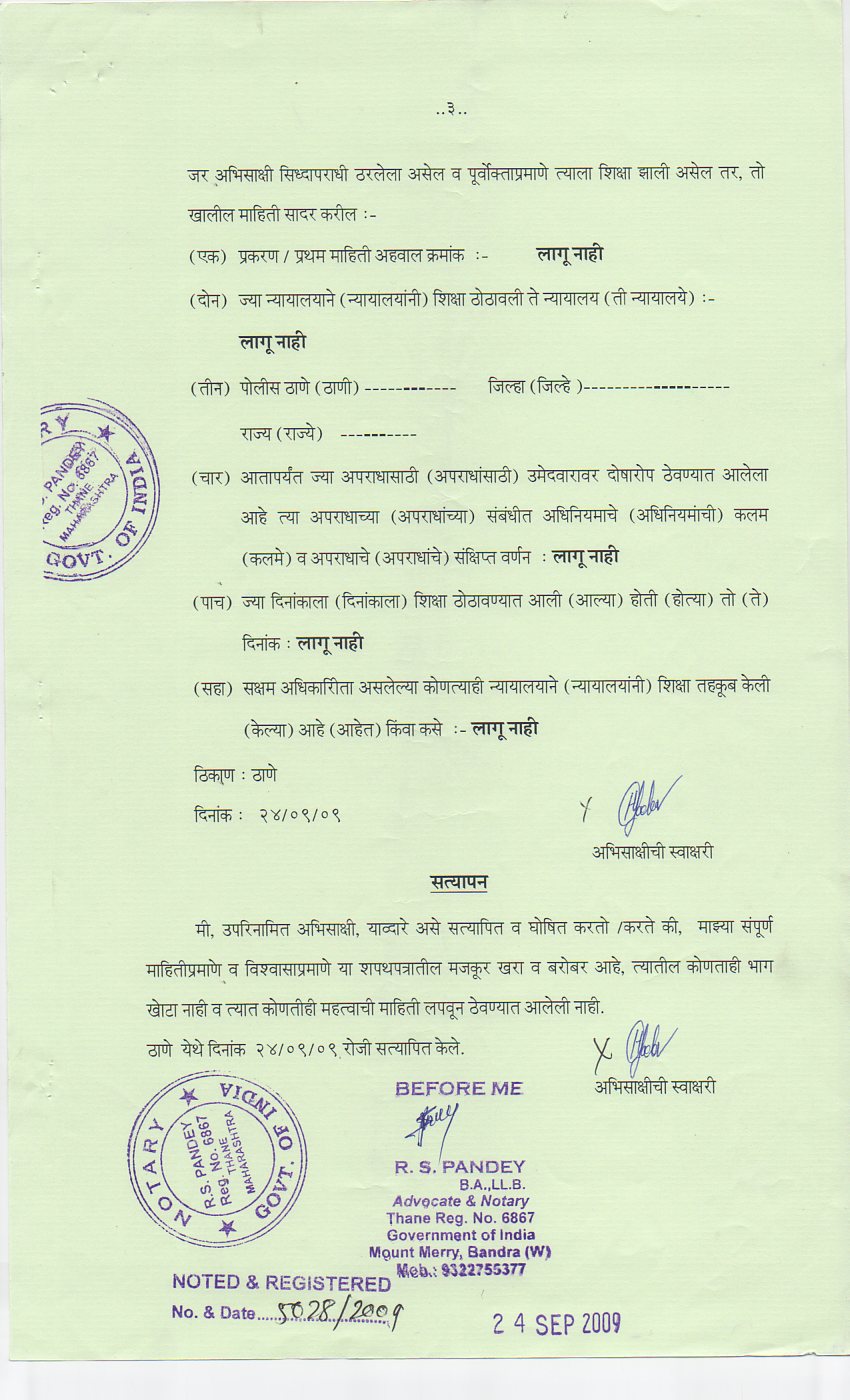 ..३..
जर अभिसाक्षी सिध्दापराधी ठरलेला असेल व पूर्वोक्ताप्रमाणे त्याला शिक्षा झाली असेल तर, तो
खालील माहिती सादर करील :-
(एक) प्रकरण / प्रथम माहिती अहवाल क्रमांक :- लागू नाही
(दोन) ज्या न्यायालयाने (न्यायालयांनी) शिक्षा ठोठावली ते न्यायालय (ती न्यायालये) :-
लागू नाही
(तीन) पोलीस ठाणे (ठाणी) ------------ जिल्हा (जिल्हे )-------------------
राज्य (राज्ये) ----------
(चार) आतापर्यंत ज्या अपराधासाठी (अपराधांसाठी) उमेदवारावर दोषारोप ठेवण्यात आलेला
आहे त्या अपराधाच्या (अपराधांच्या) संबंधीत अधिनियमाचे (अधिनियमांची) कलम
(कलमे) व अपराधाचे (अपराधांचे) संक्षिप्त वर्णन : लागू नाही
(पाच) ज्या दिनांकाला (दिनांकाला) शिक्षा ठोठावण्यात आली (आल्या) होती (होत्या) तो (ते)
दिनांक : लागू नाही
(सहा) सक्षम अधिकारिीता असलेल्या कोणत्याही न्यायालयाने (न्यायालयांनी) शिक्षा तहकूब केली
(केल्या) आहे (आहेत) किंवा कसे :- लागू नाही
ठिकाण : ठाणे
दिनांक : २४/०९/०९
अभिसाक्षीची स्वाक्षरी
सत्यापन
मी, उपरिनामित अभिसाक्षी, याव्दारे असे सत्यापित व घोषित करतो /करते की, माझ्या संपूर्ण
माहितीप्रमाणे व विश्वासाप्रमाणे या शपथपत्रातील मजकूर खरा व बरोबर आहे, त्यातील कोणताही भाग
खोटा नाही व त्यात कोणतीही महत्वाची माहिती लपवून ठेवण्यात आलेली नाही.
ठाणे येथे दिनांक २४/०९/०९ रोजी सत्यापित केले.
अभिसाक्षीची स्वाक्षरी
RY ★ GOVT. OF INDIA
S. PANDEY
Reg. No. 6867
THANE
MAHARASHTRA
NOTARY ★ GOVT. OF INDIA ★
R.S. PANDEY
Reg. No. 6867
THANE
MAHARASHTRA
BEFORE ME
R. S. PANDEY
B.A.,LL.B.
Advocate & Notary
Thane Reg. No. 6867
Government of India
Mount Merry, Bandra (W)
Mob.: 9322755377
NOTED & REGISTERED
No. & Date.....5028/2009
24 SEP 2009